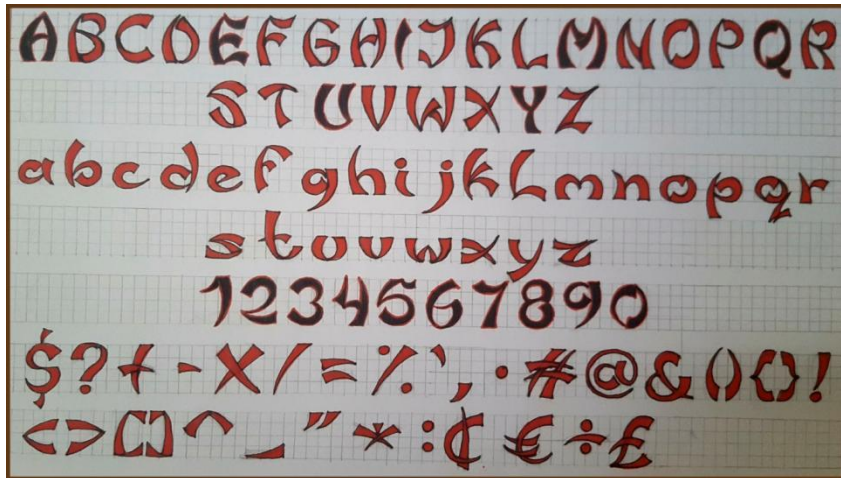 ABCDEFGHIJKLMNOPQR
STUVWXYZ
abcdefghijklmnopqr
stuvwxyz
1234567890
$?+-×/=%‛,·#@&(){}!
<>[]^_"*:¢€÷£